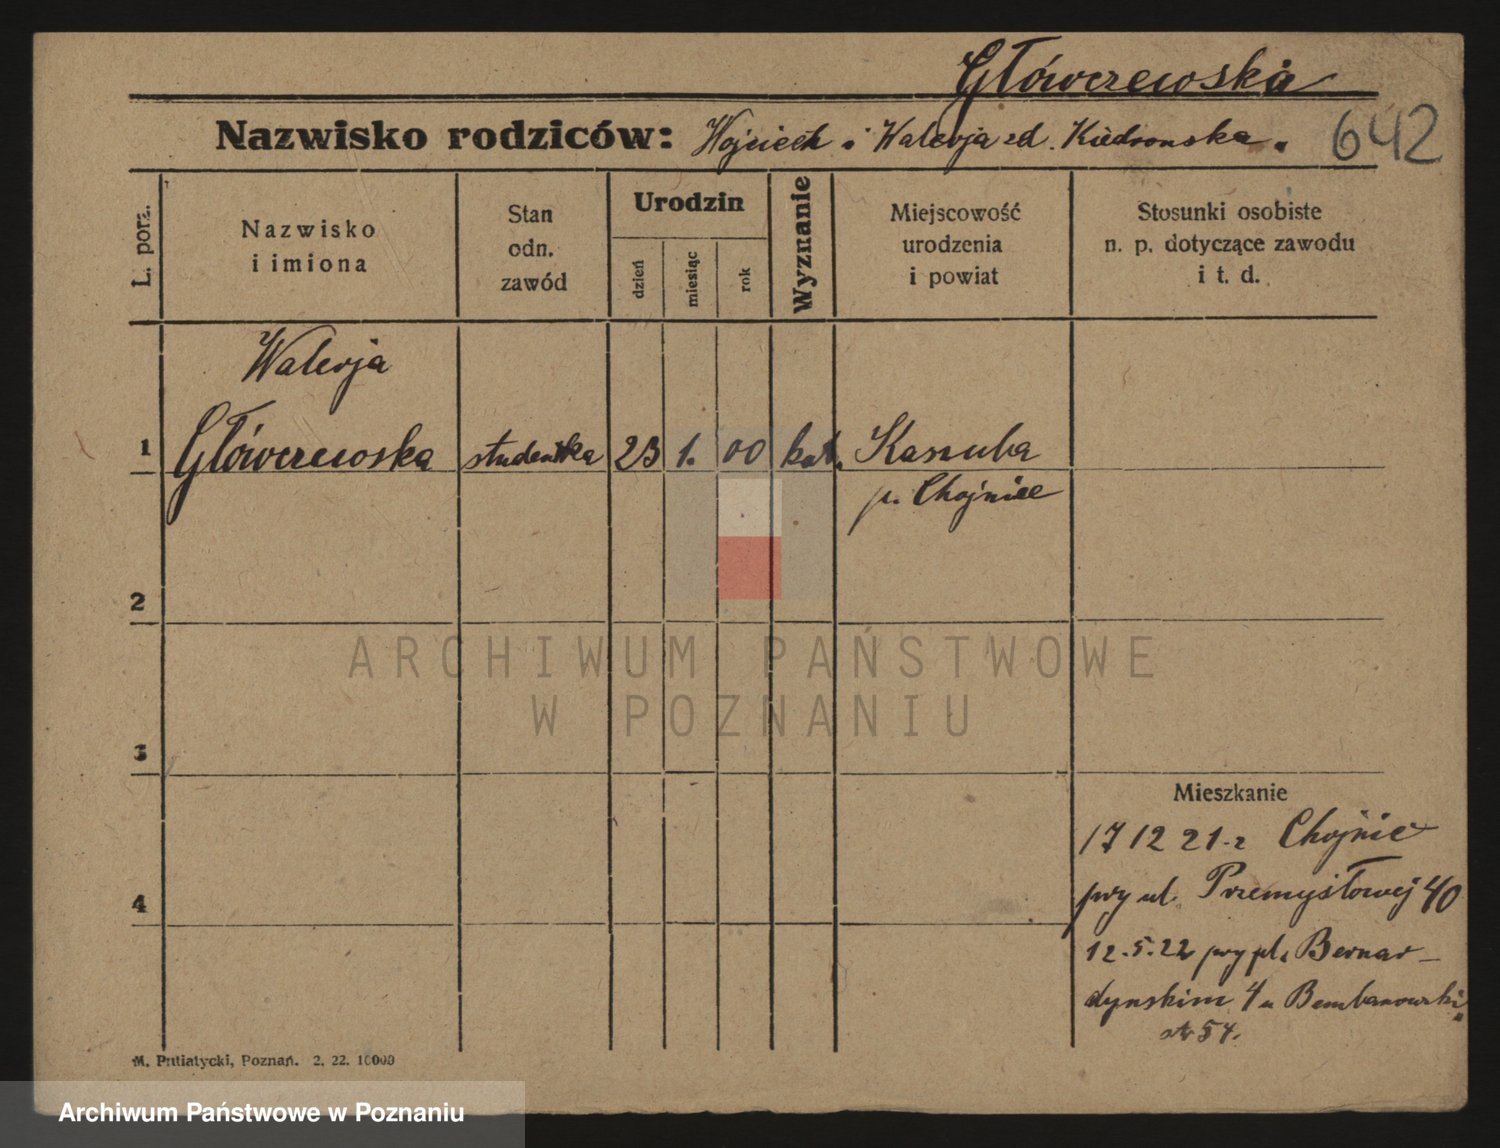 Główczewska
Nazwisko rodziców: Wojciech i Walerja zd. Kiedronska. 642
L. porz.
Nazwisko
i imiona
Stan
odn.
zawód
Urodzin
dzień
miesiąc
rok
Wyznanie
Miejscowość
urodzenia
i powiat
Stosunki osobiste
n. p. dotyczące zawodu
i t. d.
Walerja
1 Główczewska studentka 23 1. 00 kat. Kaszuba
p. Chojnice
2
ARCHIWUM PAŃSTWOWE
W POZNANIU
3
Mieszkanie
17 12 21 z Chojnic
4
przy ul. Przemysłowej 40
12.5.22 przy pl. Bernar-
dynskim 4 u
54.
M. Putiatycki, Poznań. 2. 22. 10000
Archiwum Państwowe w Poznaniu